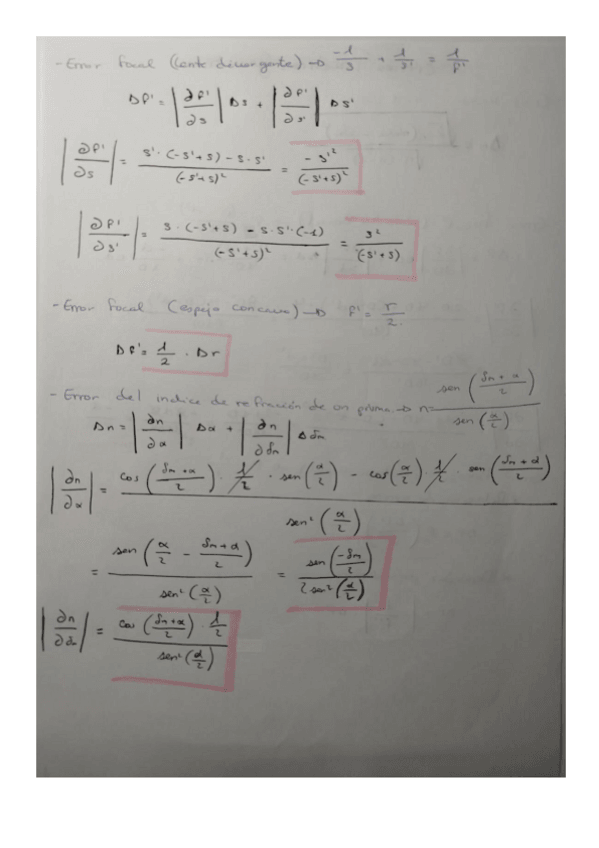 - Error focal (lente divergente) → -1/s + 1/s' = 1/f'
Δf' = |∂f'/∂s| Δs + |∂f'/∂s'| Δs'
|∂f'/∂s| = (s'·(-s'+s) - s·s')/(-s'+s)² = -s'²/(-s'+s)²
|∂f'/∂s'| = (s·(-s'+s) - s·s'·(-1))/(-s'+s)² = s²/(-s'+s)
- Error focal (espejo concavo) → f' = r/2
Δf' = 1/2 · Δr
- Error del indice de refracción de un prisma → n = sen((δm+α)/2)/sen(α/2)
Δn = |∂n/∂α| Δα + |∂n/∂δm| Δδm
|∂n/∂α| = (cos((δm+α)/2)·1/2·sen(α/2) - cos(α/2)·1/2·sen((δm+α)/2))/sen²(α/2)
= sen(α/2 - (δm+α)/2)/sen²(α/2) = sen(-δm/2)/(2 sen²(α/2))
|∂n/∂δm| = (cos((δm+α)/2)·1/2)/sen²(α/2)